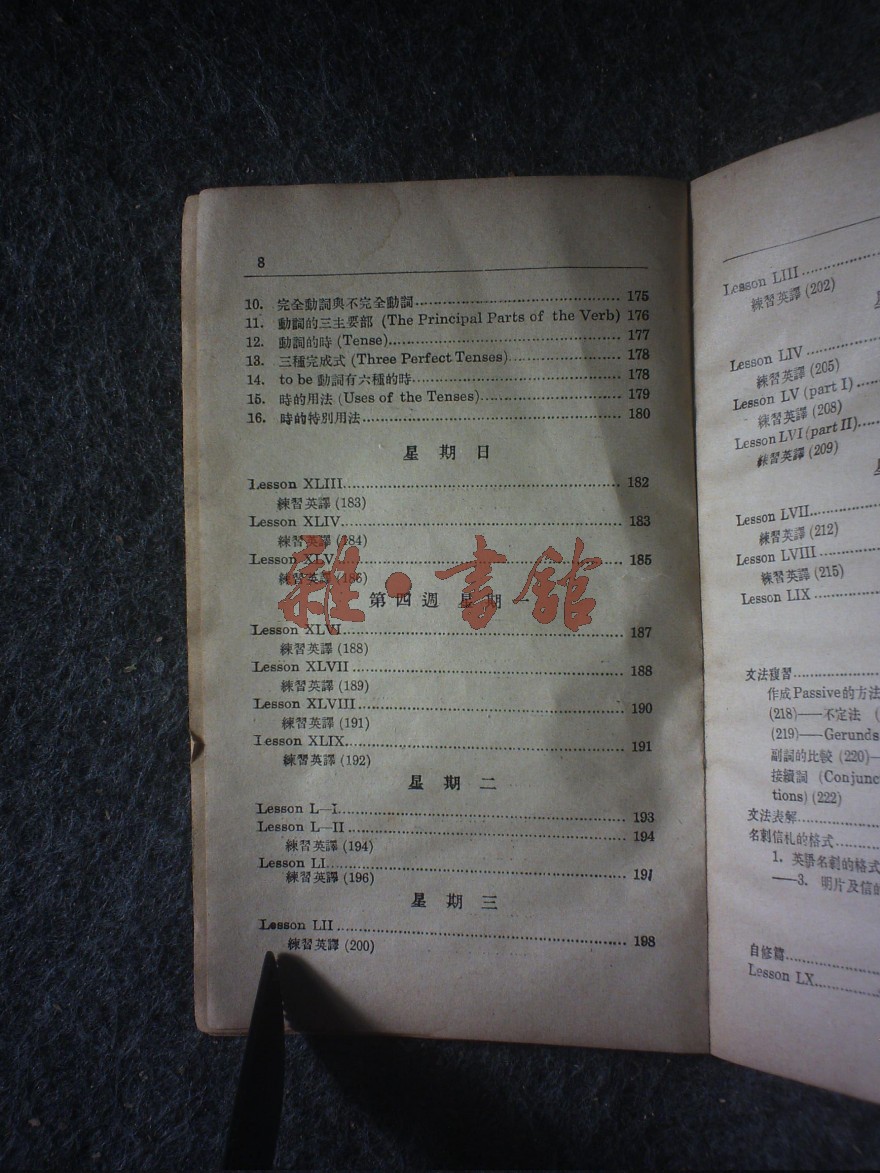 8
10. 完全動詞與不完全動詞 175
11. 動詞的三主要部 (The Principal Parts of the Verb) 176
12. 動詞的時 (Tense) 177
13. 三種完成式 (Three Perfect Tenses) 178
14. to be 動詞有六種的時 178
15. 時的用法 (Uses of the Tenses) 179
16. 時的特別用法 180
星期日
Lesson XLIII 182
練習英譯 (183)
Lesson XLIV 183
練習英譯 (184)
Lesson XLV 185
練習英譯 (186)
第四週 星期一
Lesson XLVI 187
練習英譯 (188)
Lesson XLVII 188
練習英譯 (189)
Lesson XLVIII 190
練習英譯 (191)
Lesson XLIX 191
練習英譯 (192)
星期二
Lesson L—I 193
Lesson L—II 194
練習英譯 (194)
Lesson LI 191
練習英譯 (196)
星期三
Lesson LII 198
練習英譯 (200)
雜·書館
Lesson LIII
練習英譯 (202)
Lesson LIV
練習英譯 (205)
Lesson LV (part I)
練習英譯 (208)
Lesson LVI (part II)
練習英譯 (209)
Lesson LVII
練習英譯 (212)
Lesson LVIII
練習英譯 (215)
Lesson LIX
文法複習
作成 Passive 的方法
(218)——不定法 (
(219)——Gerunds
副詞的比較 (220)—
接續詞 (Conjunc
tions) (222)
文法表解
名刺信札的格式
1. 英語名刺的格式
——3. 明片及信的
自修篇
Lesson LX